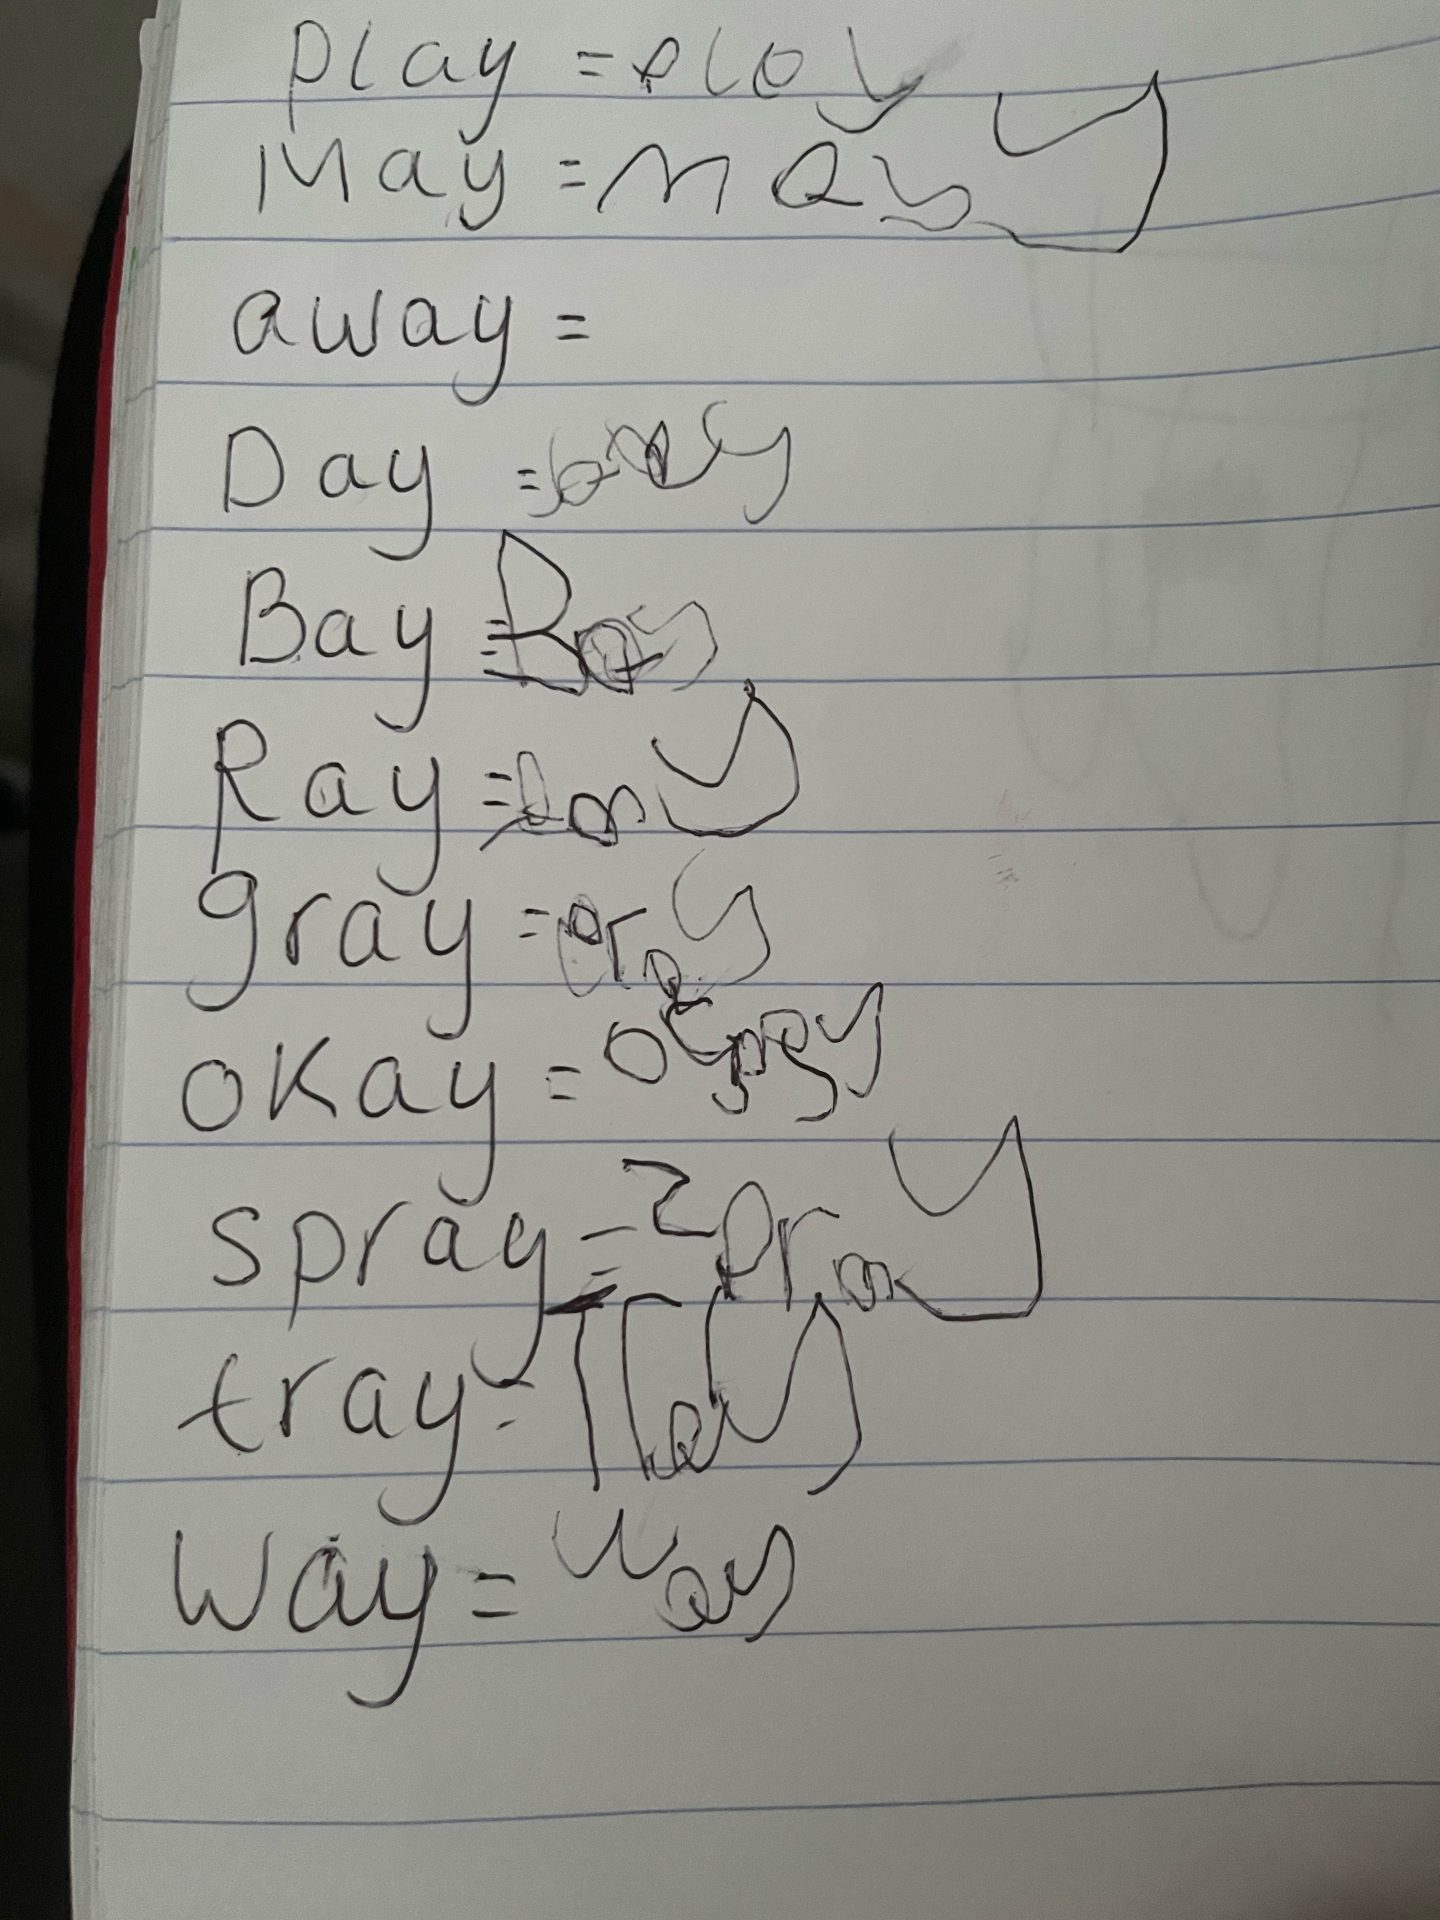 play = ploy
May = may
away =
Day =
Bay = Bay
Ray =
gray = gray
okay =
spray = spray
tray = Tray
Way = Way